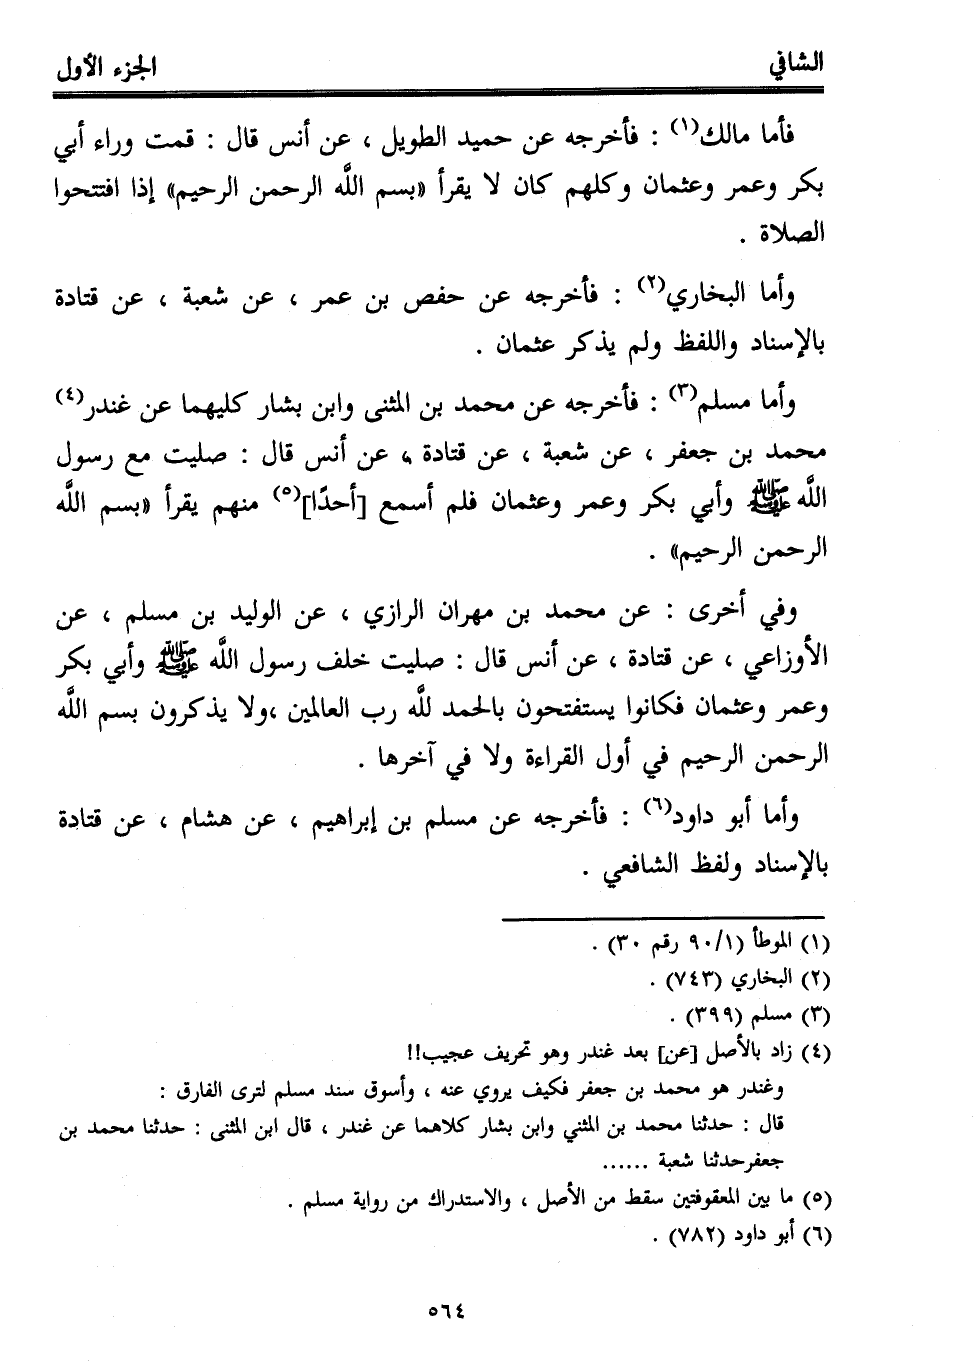 الشافي
الجزء الأول
فأما مالك(١) : فأخرجه عن حميد الطويل ، عن أنس قال : قمت وراء أبي
بكر وعمر وعثمان وكلهم كان لا يقرأ «بسم اللَّه الرحمن الرحيم» إذا افتتحوا
الصلاة .
وأما البخاري(٢) : فأخرجه عن حفص بن عمر ، عن شعبة ، عن قتادة
بالإسناد واللفظ ولم يذكر عثمان .
وأما مسلم(٣) : فأخرجه عن محمد بن المثنى وابن بشار كليهما عن غندر(٤)
محمد بن جعفر ، عن شعبة ، عن قتادة ، عن أنس قال : صليت مع رسول
اللَّه ﷺ وأبي بكر وعمر وعثمان فلم أسمع [أحدًا](٥) منهم يقرأ «بسم اللَّه
الرحمن الرحيم» .
وفي أخرى : عن محمد بن مهران الرازي ، عن الوليد بن مسلم ، عن
الأوزاعي ، عن قتادة ، عن أنس قال : صليت خلف رسول اللَّه ﷺ وأبي بكر
وعمر وعثمان فكانوا يستفتحون بالحمد للَّه رب العالمين ،ولا يذكرون بسم اللَّه
الرحمن الرحيم في أول القراءة ولا في آخرها .
وأما أبو داود(٦) : فأخرجه عن مسلم بن إبراهيم ، عن هشام ، عن قتادة
بالإسناد ولفظ الشافعي .
(١) الموطأ (٩٠/١ رقم ٣٠) .
(٢) البخاري (٧٤٣) .
(٣) مسلم (٣٩٩) .
(٤) زاد بالأصل [عن] بعد غندر وهو تحريف عجيب!!
وغندر هو محمد بن جعفر فكيف يروي عنه ، وأسوق سند مسلم لترى الفارق :
قال : حدثنا محمد بن المثني وابن بشار كلاهما عن غندر ، قال ابن المثنى : حدثنا محمد بن
جعفرحدثنا شعبة ......
(٥) ما بين المعقوفتين سقط من الأصل ، والاستدراك من رواية مسلم .
(٦) أبو داود (٧٨٢) .
٥٦٤